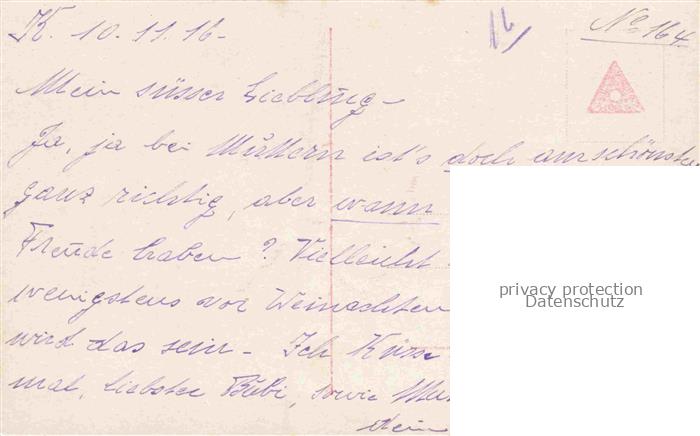 K. 10.11.16.
16
No 164.
Mein süsser Liebling –
Ja, ja bei Muttern ist's doch am schönsten
ganz richtig, aber wann
Freude haben? Vielleicht
wenigstens vor Weinachten
wird das sein – Ich Küsse
mal, liebster Bubi, sowie
dein
privacy protection
Datenschutz